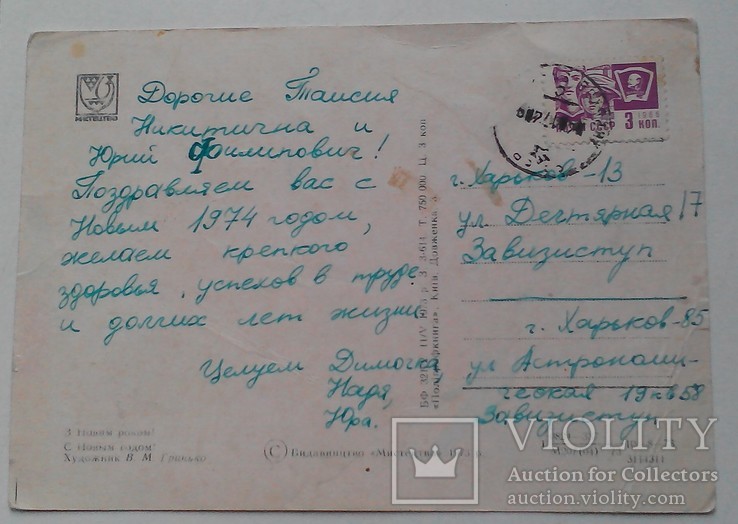 МИСТЕЦТВО
Дорогие Таисия
Никитична и
Юрий Филипович!
Поздравляем вас с
Новым 1974 годом,
желаем крепкого
здоровья, успехов в труде
и долгих лет жизни
Целуем Димочка
Надя,
Юра.
З Новим роком!
С Новым годом!
Художник В. М. Гринько
© Видавництво «Мистецтво» 1973 р.
БФ 11/V 1973 р. З. 3-614 Т. 750 000 Ц. 3 коп
Київ, Довженка 3
СССР 3 КОП.
1966
г. Харьков-13
ул. Дегтярная 17
Завизиступ
г. Харьков-85
ул Астрономи-
ческая 19 кв 58
Завизиступ
VIOLITY
Auction for Collectors
auction.violity.com